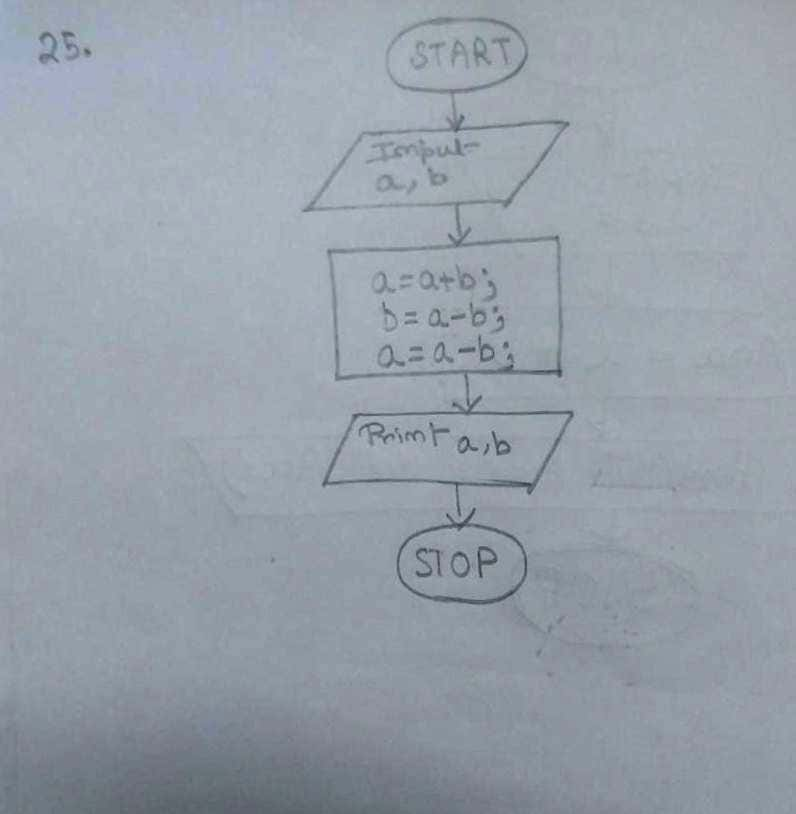 25.
START
Input
a, b
a=a+b;
b=a-b;
a=a-b;
Print a,b
STOP